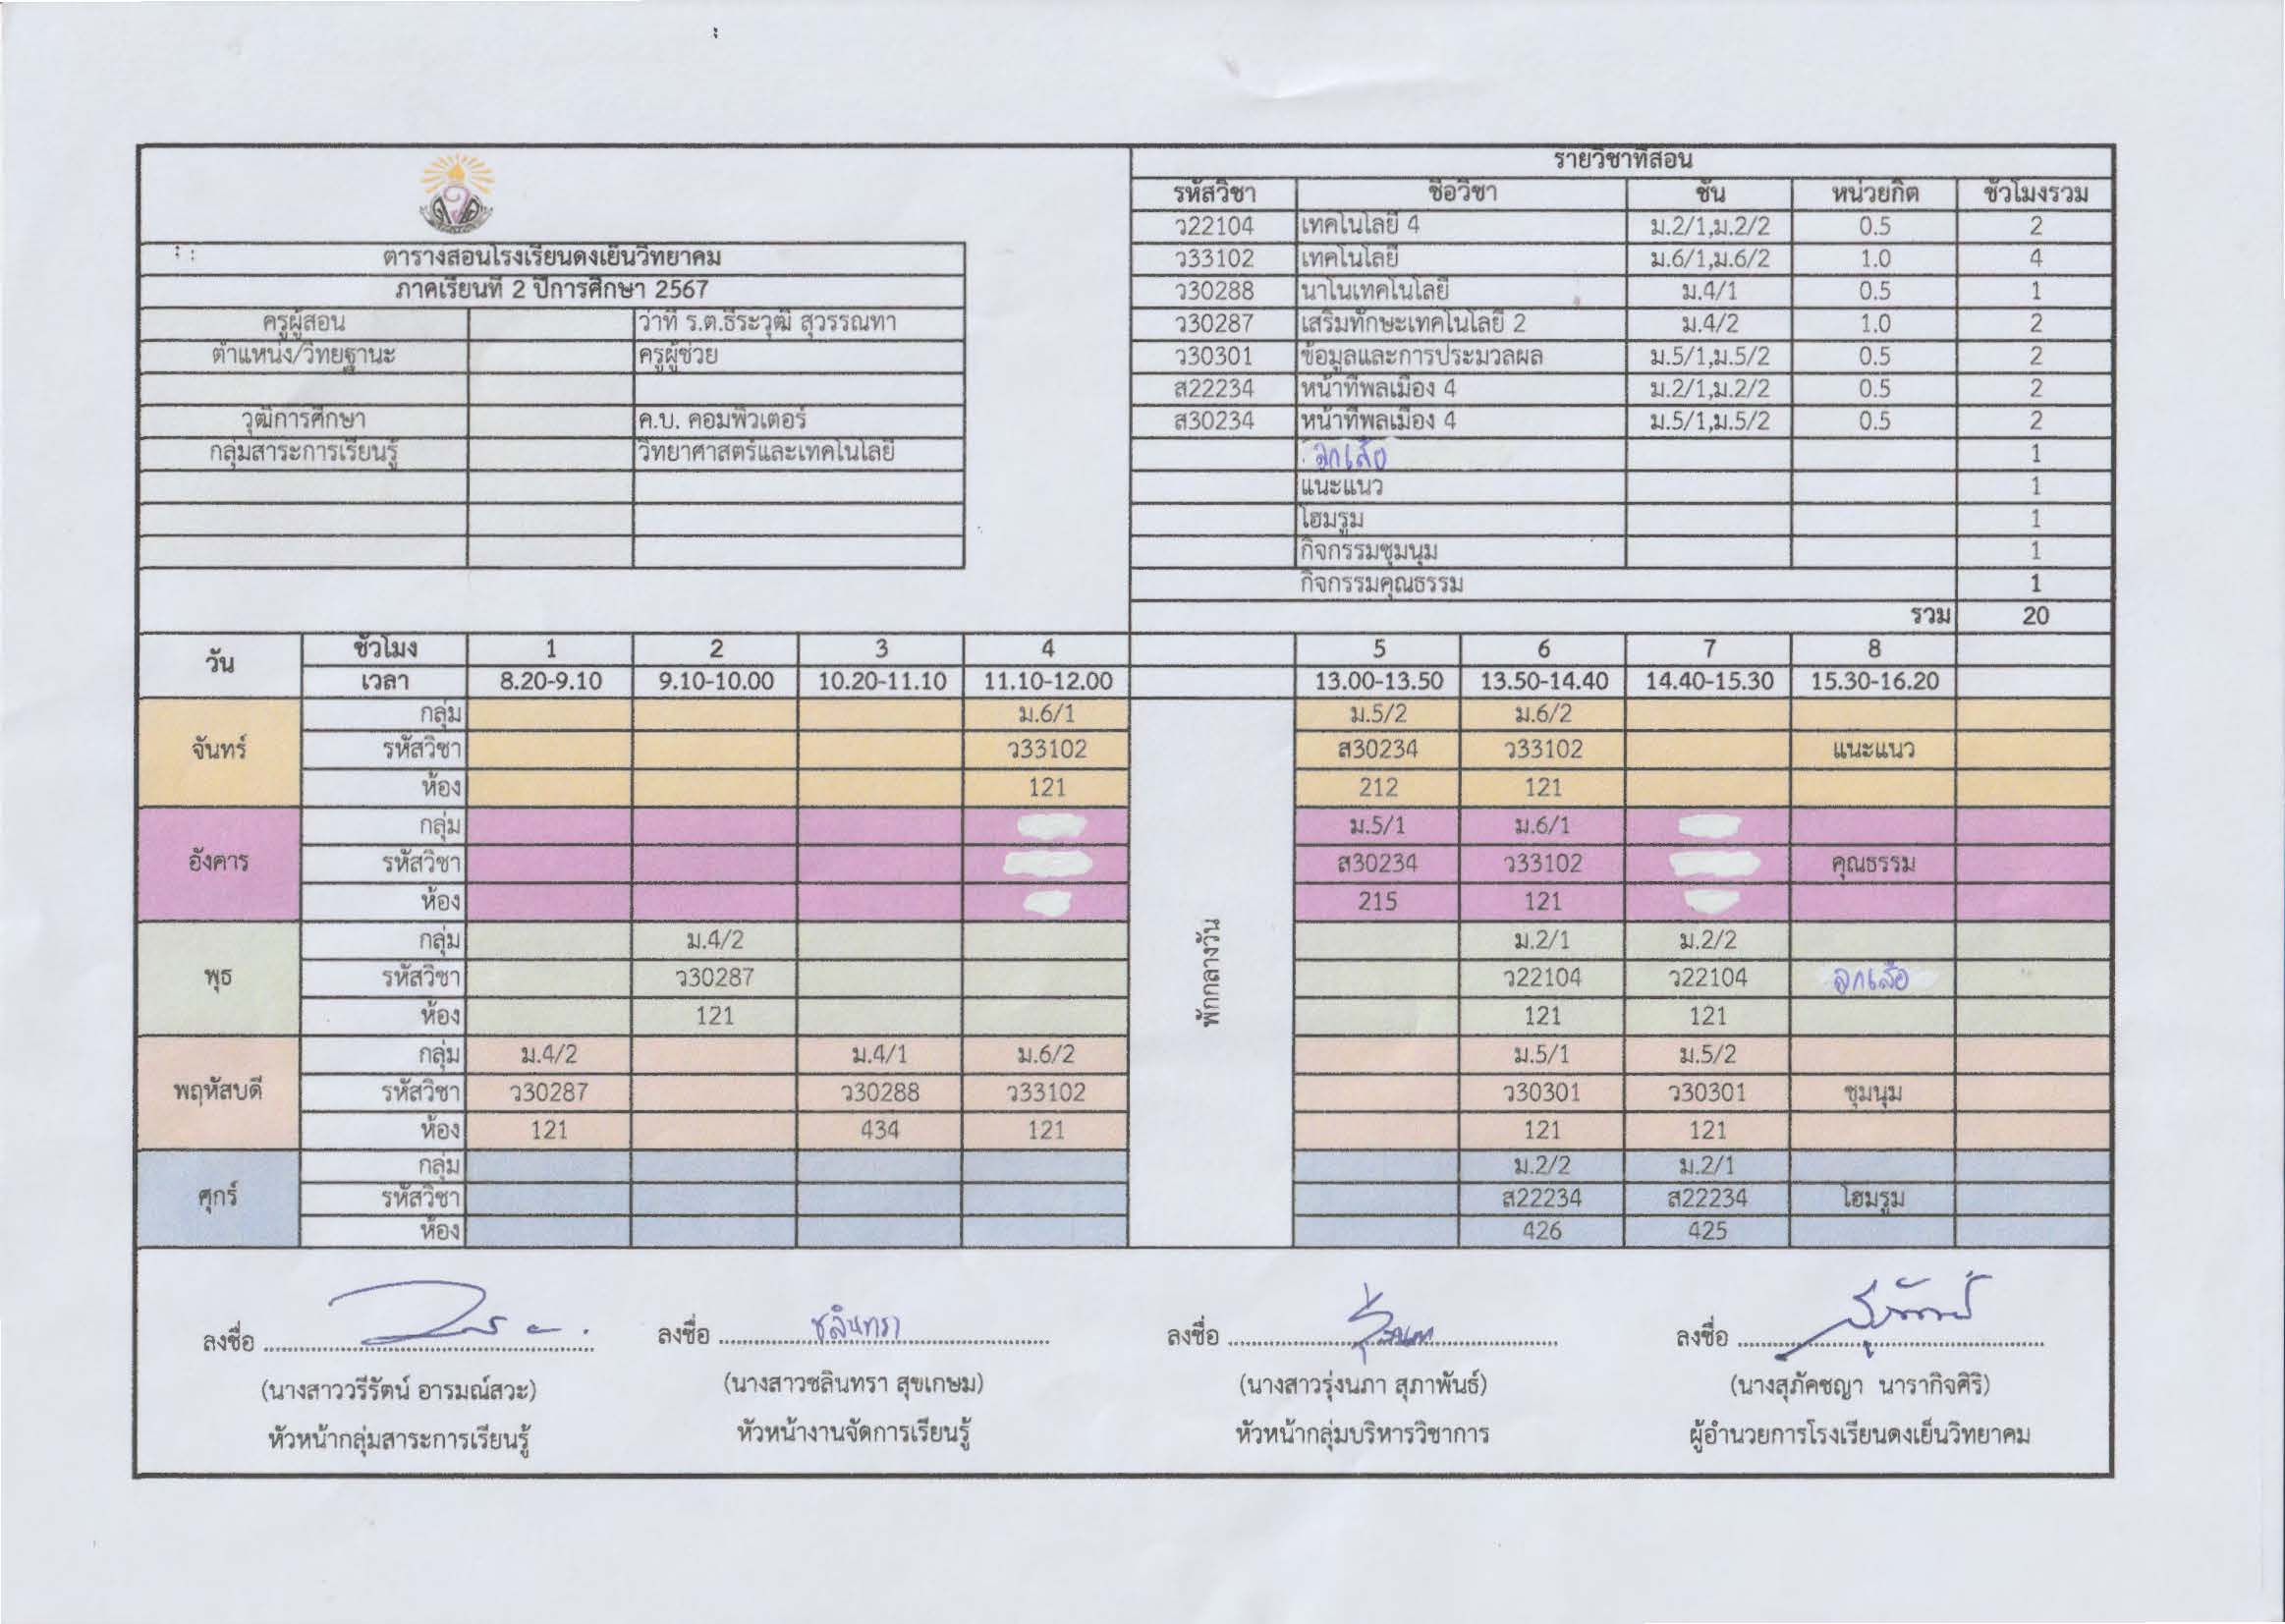 รายวิชาที่สอน
รหัสวิชา ชื่อวิชา ชั้น หน่วยกิต ชั่วโมงรวม
ว22104 เทคโนโลยี 4 ม.2/1,ม.2/2 0.5 2
ว33102 เทคโนโลยี ม.6/1,ม.6/2 1.0 4
ว30288 นาโนเทคโนโลยี ม.4/1 0.5 1
ว30287 เสริมทักษะเทคโนโลยี 2 ม.4/2 1.0 2
ว30301 ข้อมูลและการประมวลผล ม.5/1,ม.5/2 0.5 2
ส22234 หน้าที่พลเมือง 4 ม.2/1,ม.2/2 0.5 2
ส30234 หน้าที่พลเมือง 4 ม.5/1,ม.5/2 0.5 2
ลูกเสือ 1
แนะแนว 1
โฮมรูม 1
กิจกรรมชุมนุม 1
กิจกรรมคุณธรรม 1
รวม 20
ตารางสอนโรงเรียนดงเย็นวิทยาคม
ภาคเรียนที่ 2 ปีการศึกษา 2567
ครูผู้สอน ว่าที่ ร.ต.ธีระวุฒิ สุวรรณทา
ตำแหน่ง/วิทยฐานะ ครูผู้ช่วย
วุฒิการศึกษา ค.บ. คอมพิวเตอร์
กลุ่มสาระการเรียนรู้ วิทยาศาสตร์และเทคโนโลยี
วัน ชั่วโมง 1 2 3 4 5 6 7 8
เวลา 8.20-9.10 9.10-10.00 10.20-11.10 11.10-12.00 13.00-13.50 13.50-14.40 14.40-15.30 15.30-16.20
พักกลางวัน
กลุ่ม ม.6/1 ม.5/2 ม.6/2
จันทร์ รหัสวิชา ว33102 ส30234 ว33102 แนะแนว
ห้อง 121 212 121
กลุ่ม ม.5/1 ม.6/1
อังคาร รหัสวิชา ส30234 ว33102 คุณธรรม
ห้อง 215 121
กลุ่ม ม.4/2 ม.2/1 ม.2/2
พุธ รหัสวิชา ว30287 ว22104 ว22104 ลูกเสือ
ห้อง 121 121 121
กลุ่ม ม.4/2 ม.4/1 ม.6/2 ม.5/1 ม.5/2
พฤหัสบดี รหัสวิชา ว30287 ว30288 ว33102 ว30301 ว30301 ชุมนุม
ห้อง 121 434 121 121 121
กลุ่ม ม.2/2 ม.2/1
ศุกร์ รหัสวิชา ส22234 ส22234 โฮมรูม
ห้อง 426 425
ลงชื่อ ลงชื่อ ชลินทรา ลงชื่อ ลงชื่อ
(นางสาววรีรัตน์ อารมณ์สวะ) (นางสาวชลินทรา สุขเกษม) (นางสาวรุ่งนภา สุภาพันธ์) (นางสุภัคชญา นารากิจศิริ)
หัวหน้ากลุ่มสาระการเรียนรู้ หัวหน้างานจัดการเรียนรู้ หัวหน้ากลุ่มบริหารวิชาการ ผู้อำนวยการโรงเรียนดงเย็นวิทยาคม